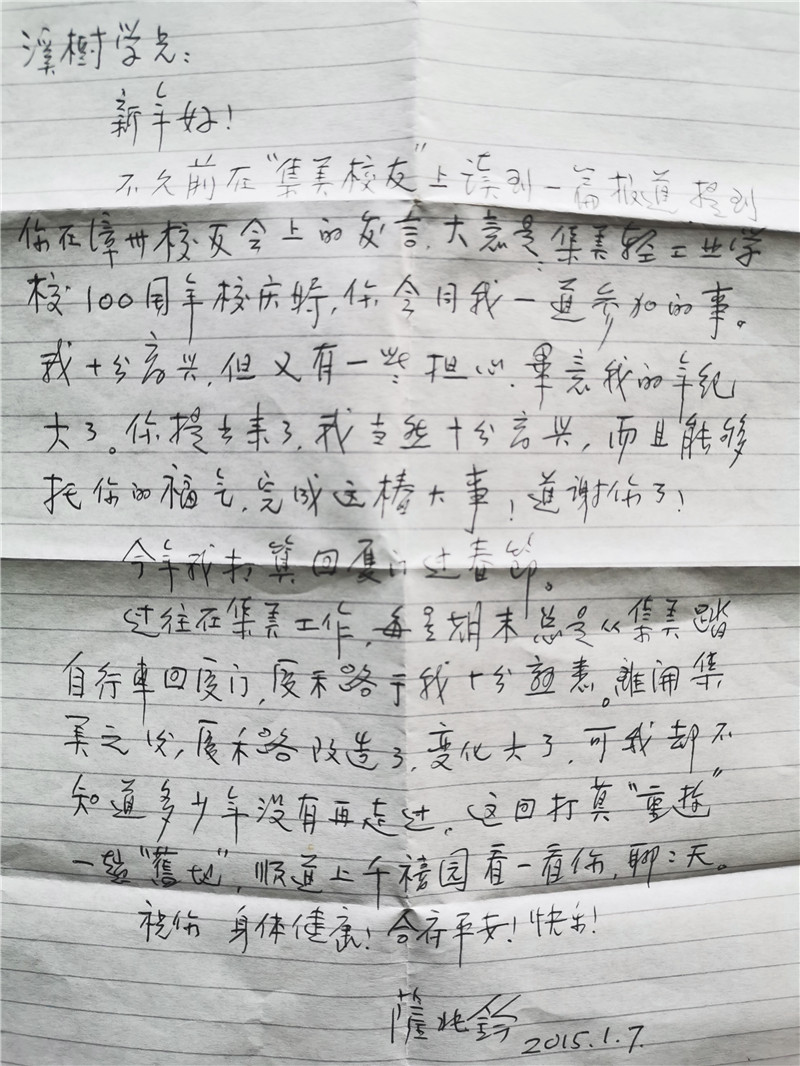 溪樹学兄：
新年好！
不久前在“集美校友”上读到一篇报道，提到
你在漳州校友会上的发言，大意是：集美轻工业学
校100周年校庆時，你会同我一道参加的事。
我十分高兴，但又有一些担心，畢竟我的年纪
大了。你提出来了，我当然十分高兴，而且能够
托你的福气，完成这樁大事！道谢你了！
今年我打算回厦门过春節。
过往在集美工作，每星期末总是从集美踏
自行車回厦门，厦禾路于我十分熟悉。離開集
美之后，厦禾路改造了，变化大了，可我却不
知道多少年没有再走过，这回打算“重遊”
一趟“舊地”，顺道上千禧园看一看你，聊：天。
祝你 身体健康！合府平安！快乐！
2015.1.7.